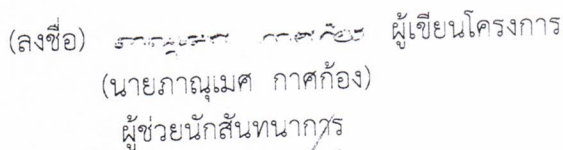 (ลงชื่อ) ภาณุเมศ กาศก้อง ผู้เขียนโครงการ
(นายภาณุเมศ กาศก้อง)
ผู้ช่วยนักสันทนาการ